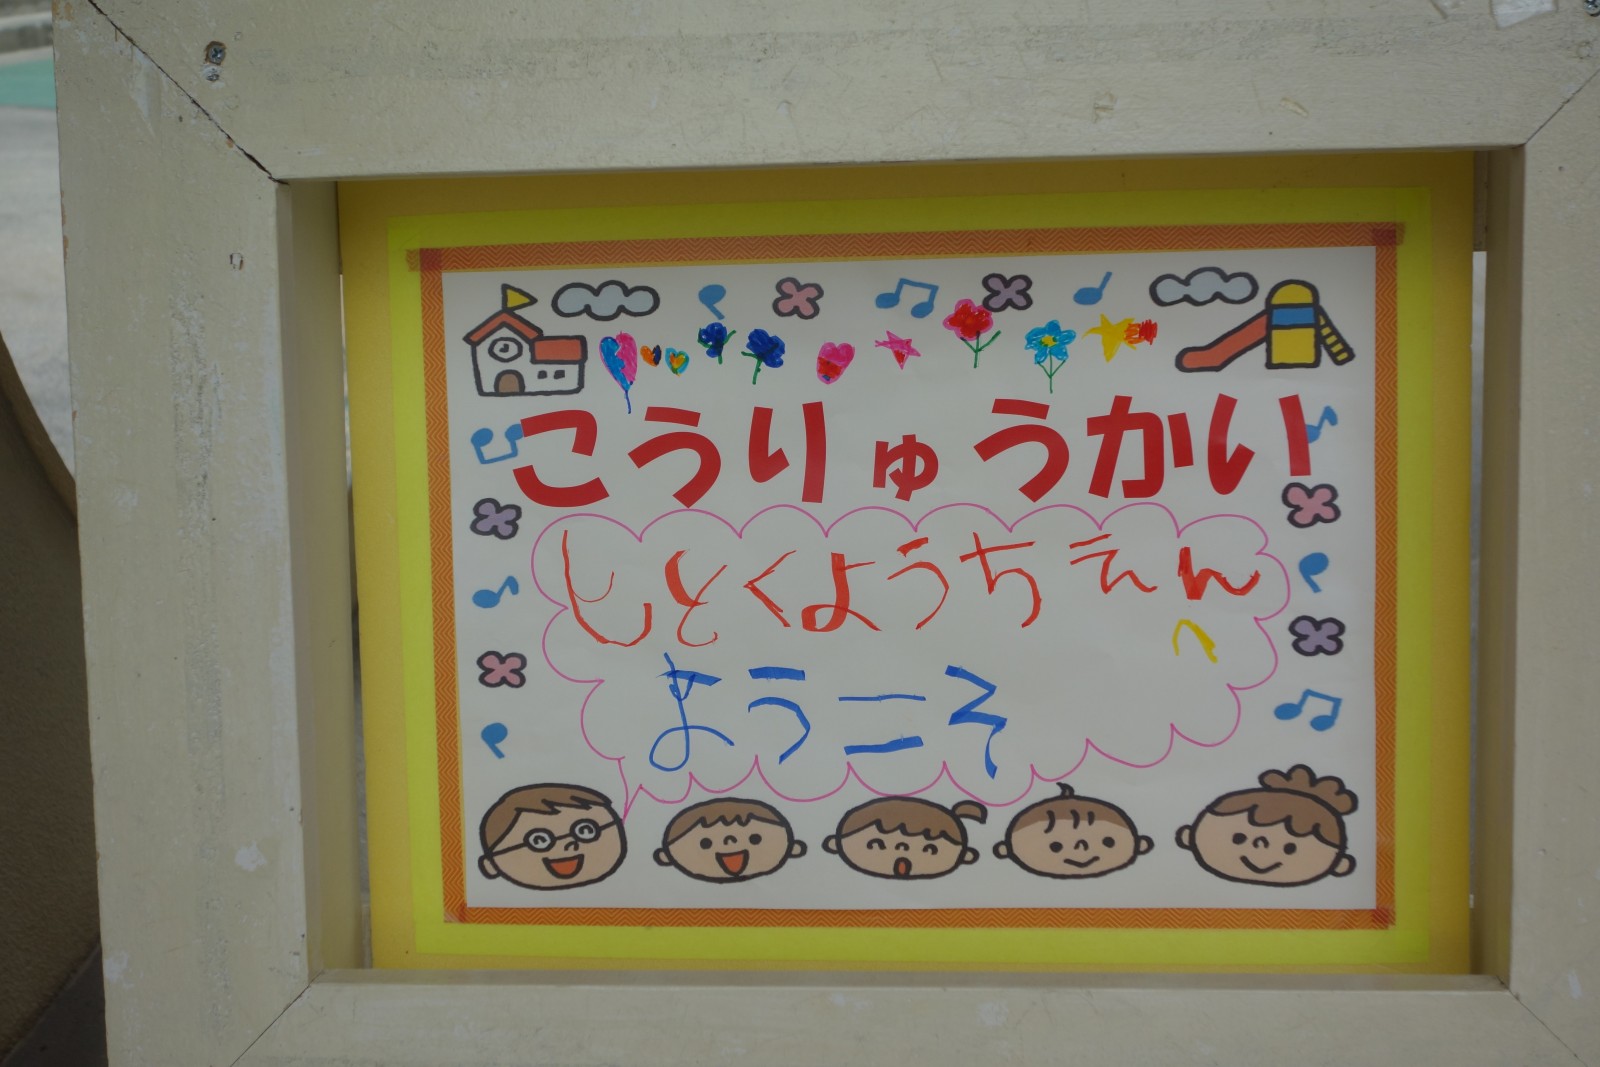 こうりゅうかい
しとくようちえん
へ
ようこそ